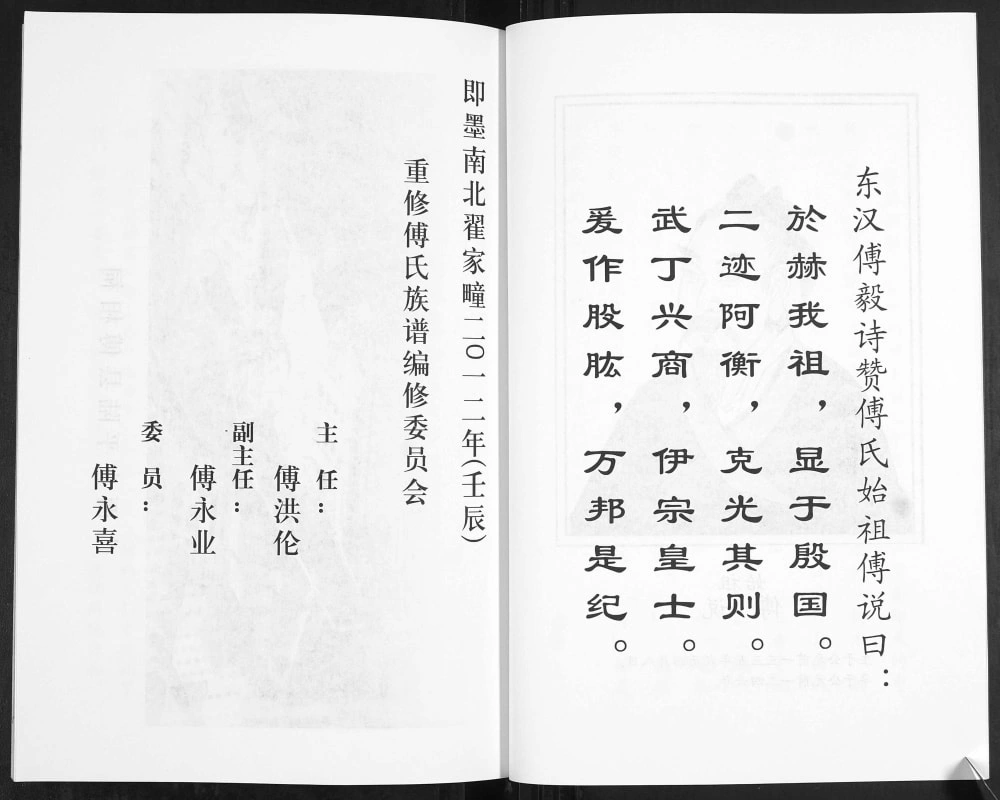 东汉傅毅诗赞傅氏始祖傅说曰：
於赫我祖，显于殷国。
二迹阿衡，克光其则。
武丁兴商，伊宗皇士。
爰作股肱，万邦是纪。
即墨南北翟家疃二〇一二年(壬辰)
重修傅氏族谱编修委员会
主任：
傅洪伦
副主任：
傅永业
委员：
傅永喜